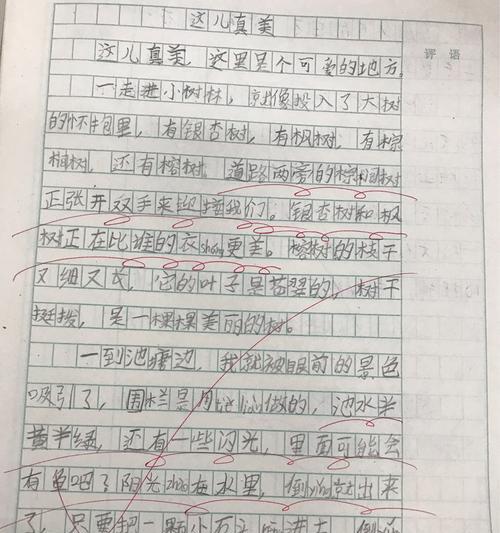 这儿真美
评语
这儿真美，这里是个可爱的地方。
一走进小树林，就像投入了大树
的怀抱里，有银杏树，有枫树，有棕
榈树，还有榕树。道路两旁的棕榈树
正张开双手来迎接我们。银杏树和枫
树正在比谁的衣shang更美。榕树的枝干
又细又长，它的叶子是苍翠的，树干
挺拨，是一棵棵美丽的树。
一到池塘边，我就被眼前的景色
吸引了，围栏是用 做的，池水半
黄半绿，还有一些闪光，里面可能会
有鱼吧？阳光zhao在水里，倒ying 出来
了，只要把一颗小石头 进去，倒